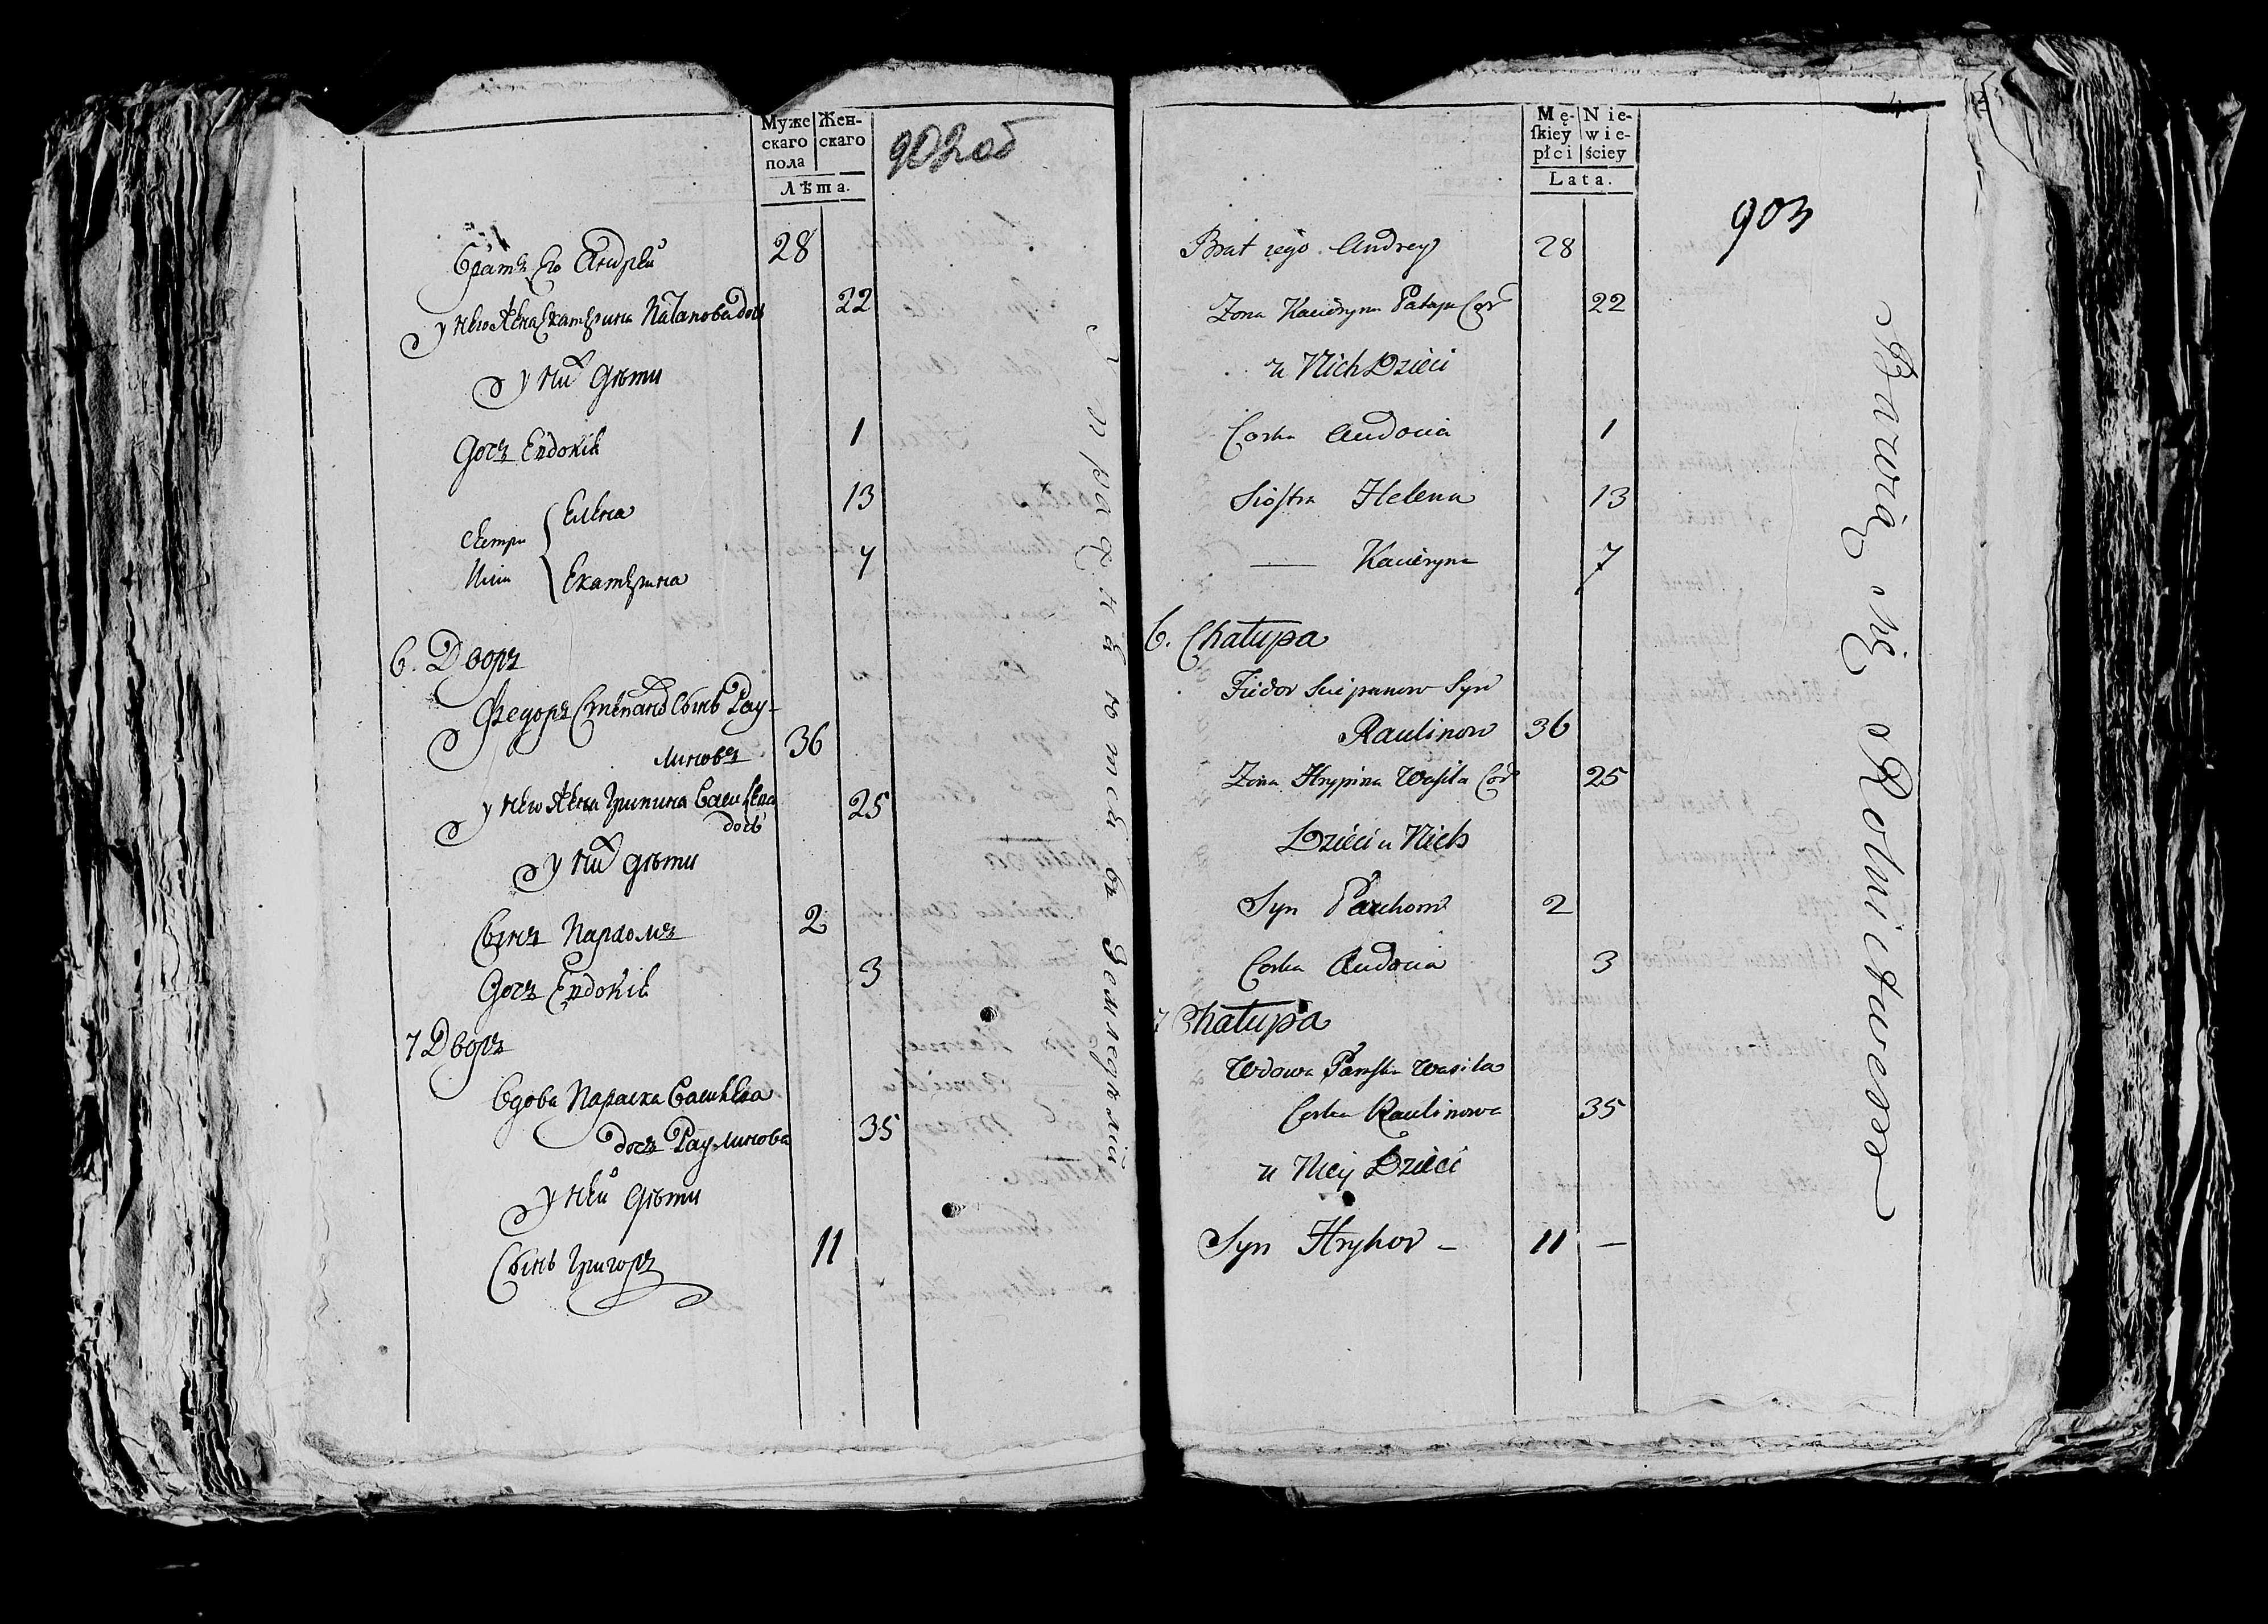 Муже
скаго
пола
Жен-
скаго
Лѣта.
902 об
братъ Его Андрей 28
у него жена Екатерина Па дочь 22
у них дѣти
дочь Евдокія 1
сестри Елена 13
Екатерина 7
6. Дворъ
Федоръ Степановъ Сынъ Рау-
линовъ 36
у него жена Грипина Василева 25
дочь
у них дѣти
Сынъ Пархомъ 2
дочь Евдокія 3
7 Дворъ
Вдова Параска Василева
дочь Раулинова 35
у ней дѣти
Сынъ Григоръ 11
упражняются въ Земледѣліи
Mę-
ſkiey
płci
Nie-
wie-
ściey
Lata.
903
Brat iego Andrey 28
Zona Kacieryna Patapa Cor 22
u Nich Dzieci
Corka Audocia 1
Siostra Helena 13
— Kacieryna 7
6. Chatupa
Fiedor Sciepanow Syn
Raulinow 36
Zona Hrypina Wasila Cor 25
Dzieci u Nich
Syn Parchom 2
Corka Audocia 3
7 Chatupa
Wdowa Paraska Wasila
Corka Raulinowa 35
u Niey Dzieci
Syn Hryhor – 11 —
Bawią się Rolnictwem